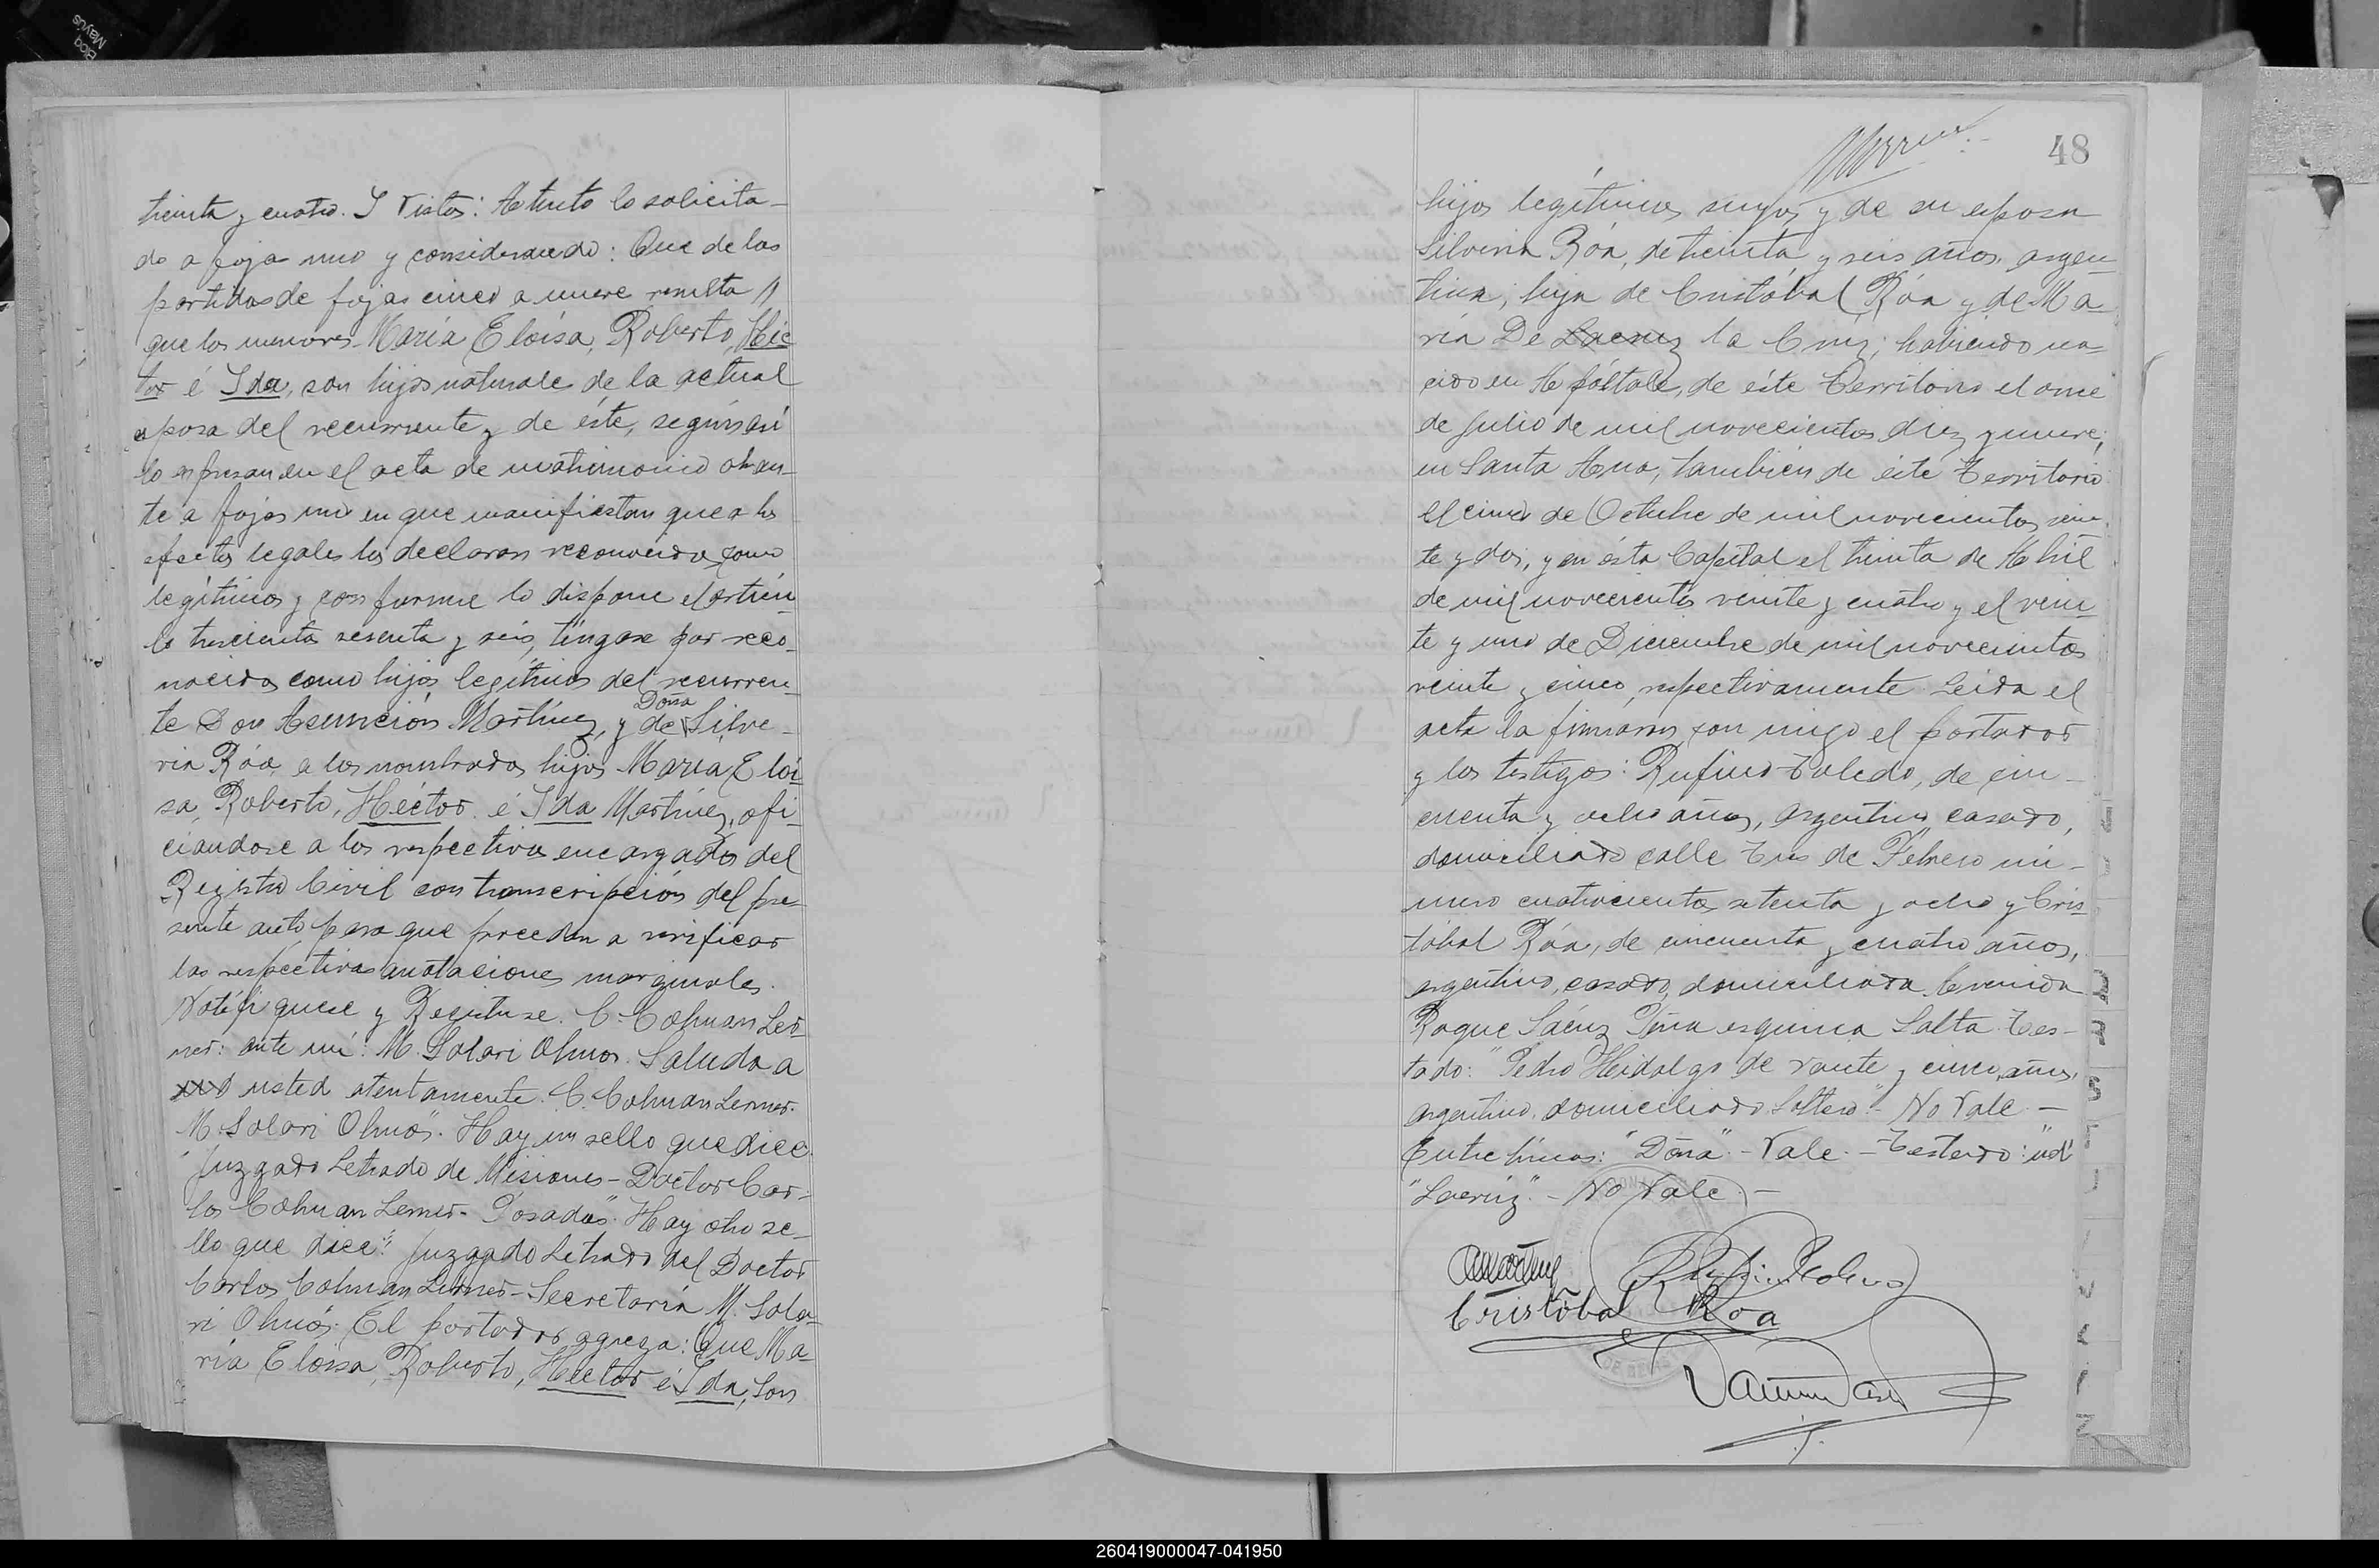 treinta y cuatro. Y Vistos: Atento lo solicita-
do a foja uno y considerando: Que de las
partidas de fojas cinco a nueve resulta //
que los menores María Eloísa, Roberto, Héc
tor é Ida, son hijos naturales de la actual
esposa del recurrente y de éste, según así
lo expresan en el acta de matrimonio obran-
te a fojas uno en que manifiestan que a los
efectos legales los declaran reconocidos como
legítimos y conforme lo dispone el artícu-
lo trescientos sesenta y seis, téngase por reco-
nocidos como hijos legítimos del recurren-
te Don Asunción Martínez, y de Silve-
Doña
ria Róa, a los nombrados hijos María Eloi
sa, Roberto, Héctor é Ida Martínez, ofi-
ciandose a los respectivos encargados del
Registro Civil con transcripción del pre-
sente auto para que procedan a verificar
las respectivas anotaciones marginales.
Notifíquese y Regístrese. C. Colman Ler-
ner: ante mí: M. Solari Olmos. Saluda a
ud usted atentamente. C. Colman Lerner.
M. Solari Olmos". Hay un sello que dice:
"Juzgado Letrado de Misiones - Doctor Car-
los Colman Lerner - Posadas". Hay otro se-
llo que dice: "Juzgado Letrado del Doctor
Carlos Colman Lerner - Secretaría M. Sola-
ri Olmos. El portador agrega: Que Ma-
ría Eloísa, Roberto, Hector é Ida, son
48
hijos legítimos suyos y de su esposa
Silveria Róa, de treinta y seis años, argen-
tina, hija de Cristóbal Róa y de Ma-
ría De Lacruz la Cruz; habiendo na-
cido en Apóstoles, de éste Territorio el once
de Julio de mil novecientos diez y nueve;
en Santa Ana, también de éste Territorio
el cinco de Octubre de mil novecientos vein-
te y dos, y en ésta Capital el treinta de Abril
de mil novecientos veinte y cuatro y el vein-
te y uno de Diciembre de mil novecientos
veinte y cinco, respectivamente. Leida el
acta la firmaron con migo el portador
y los testigos: Rufino Toledo, de cin-
cuenta y ocho años, argentino casado,
domiciliado calle Tres de Febrero nú-
mero cuatrocientos setenta y ocho y Cris-
tóbal Róa, de cincuenta y cuatro años,
argentino, casado, domiciliado Avenida
Roque Sáenz Peña esquina Salta. Tes-
tado: "Pedro Hidalgo de veinte y cinco años,
argentino, domiciliado Soltero" - No Vale -
Entre líneas: "Doña" - Vale. - Testado: "ud"
"Lacruz". - No Vale. -
Cristóbal Roa
260419000047-041950